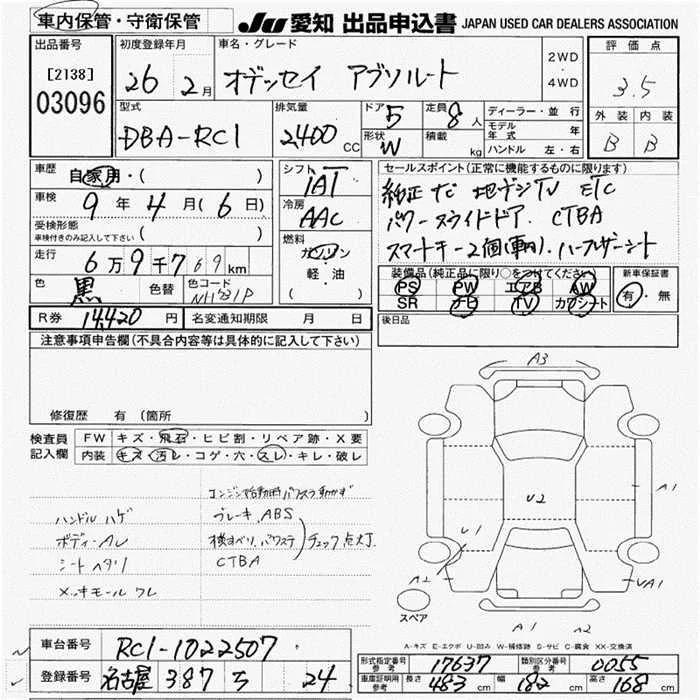 車内保管・守衛保管
JU 愛知 出品申込書 JAPAN USED CAR DEALERS ASSOCIATION
出品番号
[2138]
03096
初度登録年月
26 2月
車名・グレード
オデッセイ アブソルート
2WD
・
4WD
評価点
3.5
外装 内装
B B
型式
DBA-RC1
排気量
2400 CC
ドア 5
形状 W
定員 8人
積載 kg
ディーラー・並行
モデル年式 年
ハンドル 左・右
車歴
自家用・( )
車検
9年4月(6日)
受検形態
車検付きのみ記入して下さい ( )
走行
6万9千769km
色
黒
色替
色コード
NH731P
シフト
IAT
冷房
AAC
燃料
ガソリン
軽・油
( )
セールスポイント(正常に機能するものに限ります)
純正ナビ 地デジTV ETC
パワースライドドア. CTBA
スマートキー2個(車内). ハーフレザーシート
装備品(純正品に限り○をつけてください)
PS PW エアB AW
SR ナビ TV カワシート
新車保証書
有・無
R券 14,420円
名変通知期限 月 日
後日品
注意事項申告欄(不具合内容等は具体的に記入して下さい)
修復歴 有(箇所
検査員
記入欄
FW キズ・飛石・ヒビ割・リペア跡・X要
内装 キズ・汚レ・コゲ・穴・スレ・キレ・破レ
エンジン始動時パワスラ動かず
ハンドルハゲ
ブレーキ.ABS
ボディーAレ
横すべり.パワステ
チェック点灯.
シートヘタリ
CTBA
メッキモールワレ
A3
A1
U2
U1
A2
UA1
スペア
A1 A2
A-キズ E-エクボ U-凹み W-補修跡 S-サビ C-腐食 XX-交換済
車台番号 RC1-1022507
登録番号 名古屋 387 ろ 24
形式指定番号
参考
17637
類別区分番号
参考
0055
車庫証明用
参考
長さ 483cm 幅 182cm 高さ 168cm